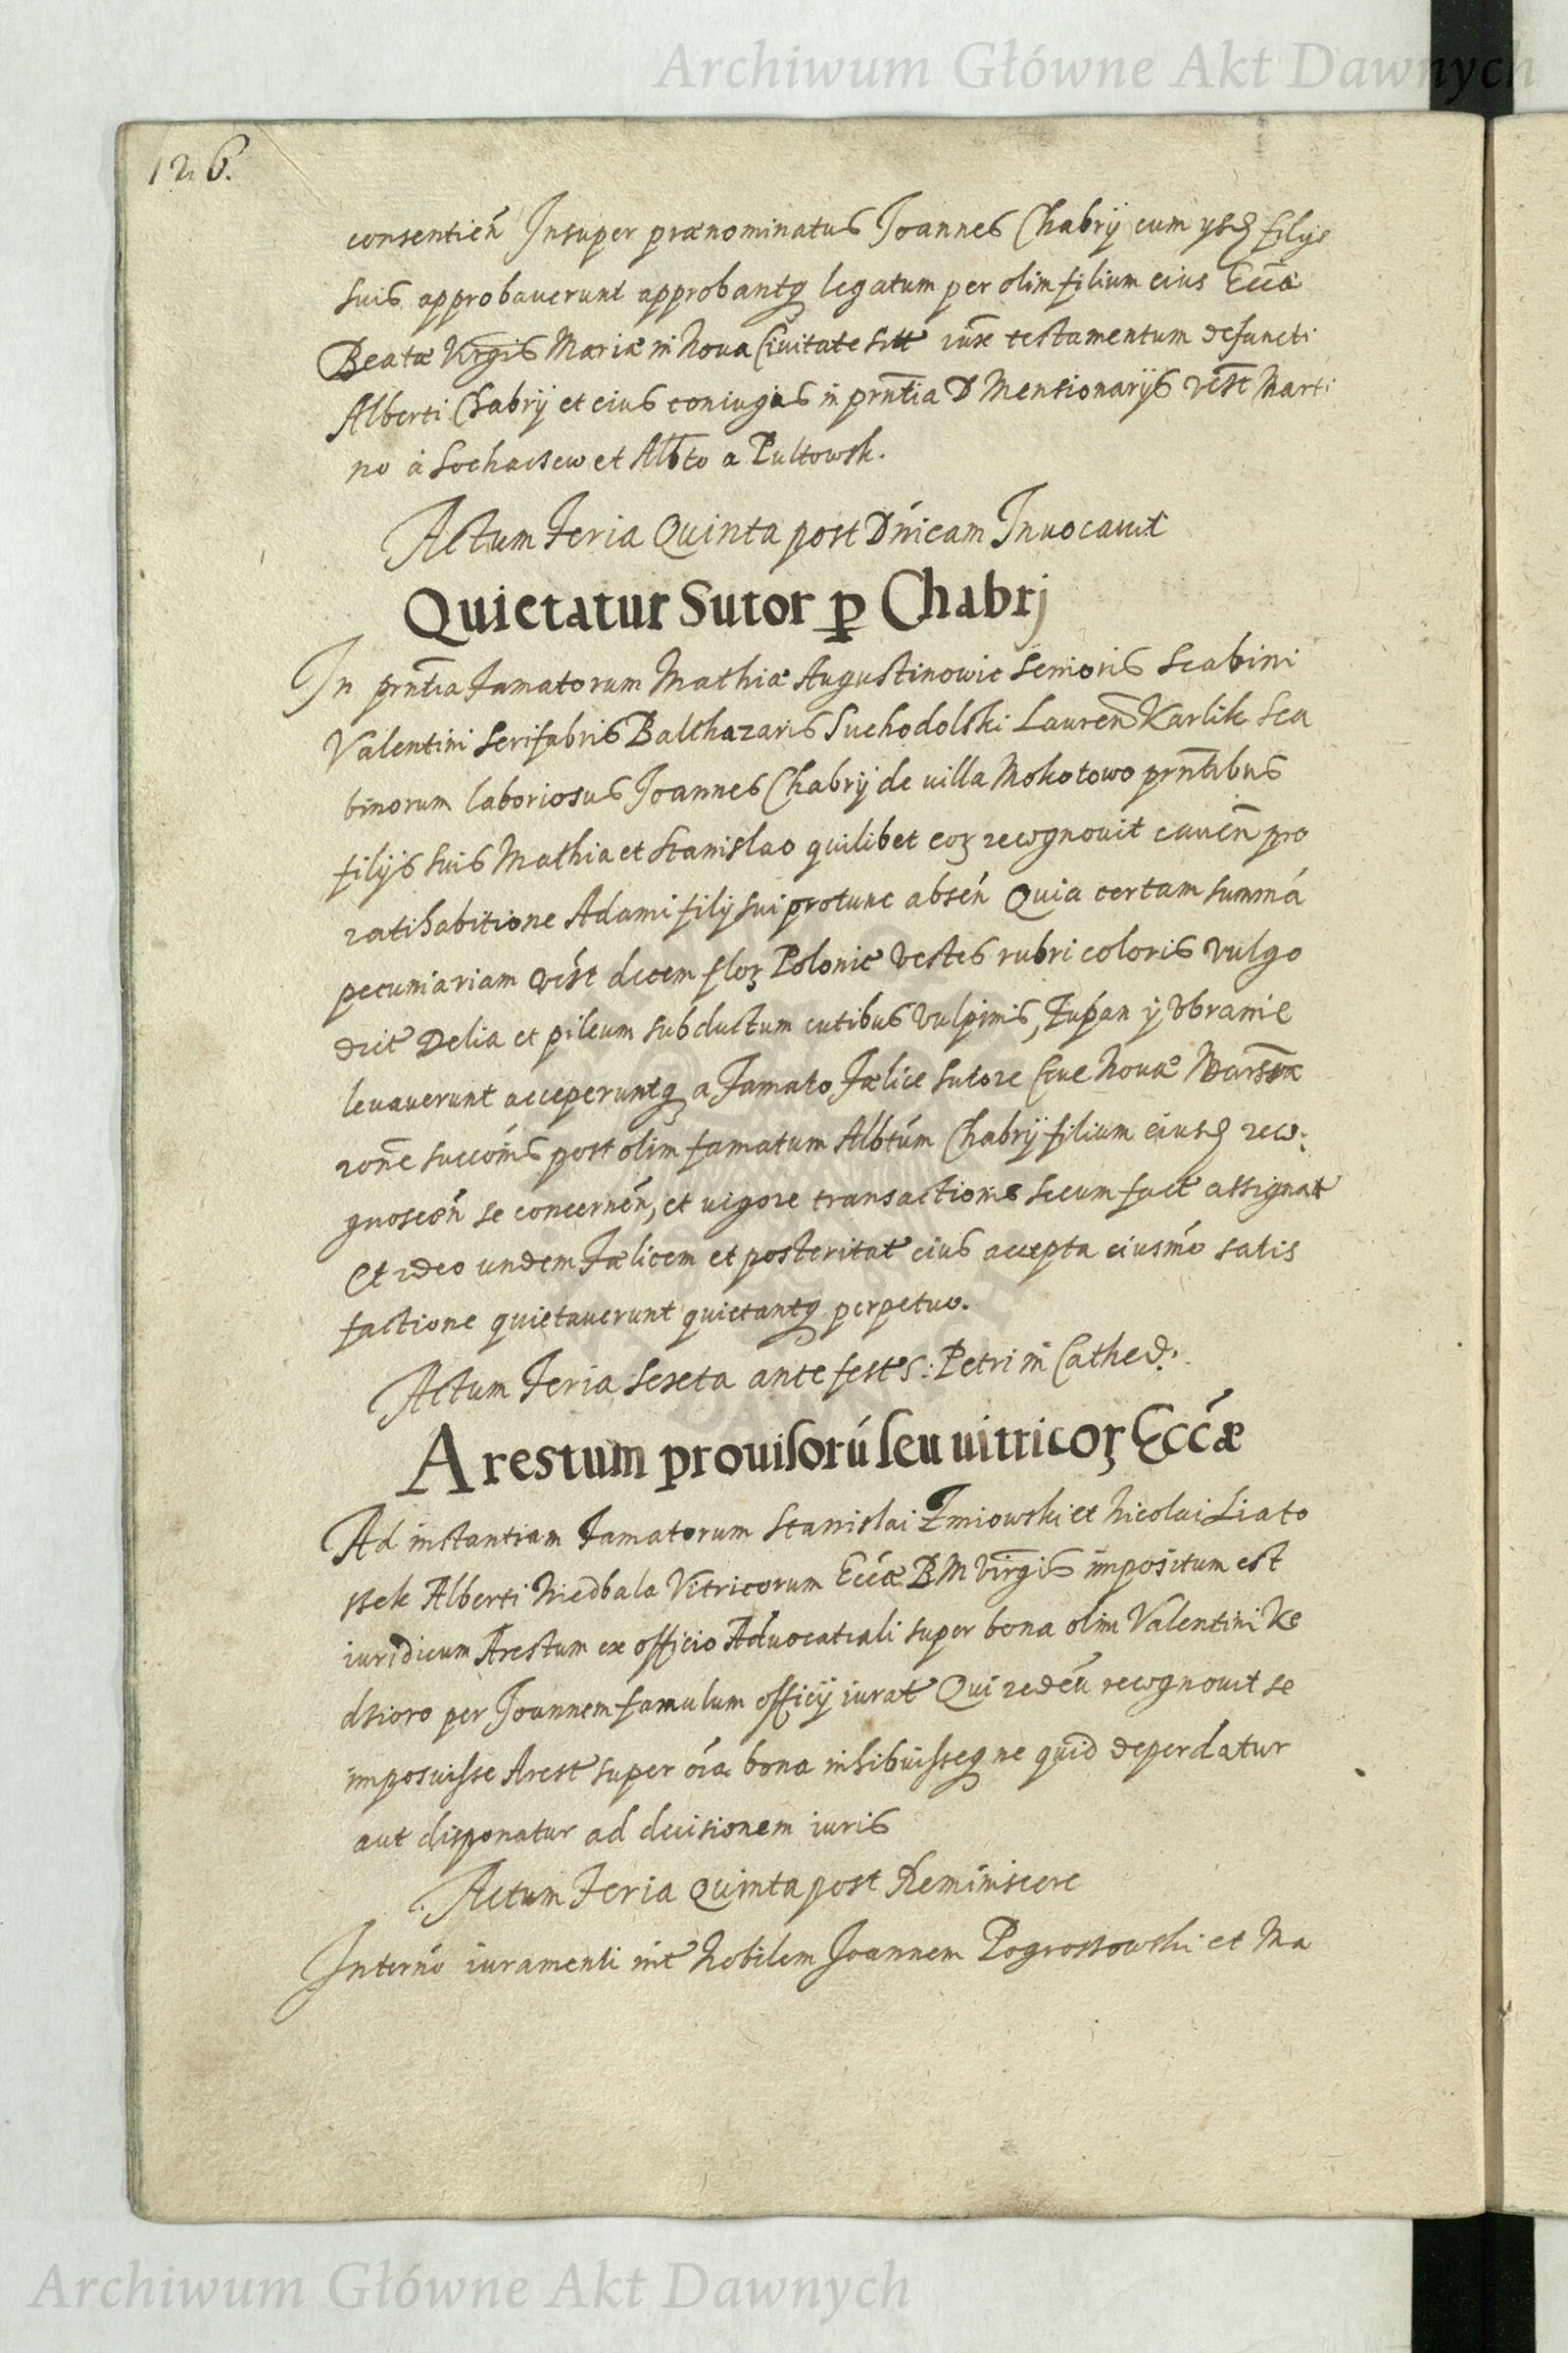 Archiwum Główne Akt Dawnych
126.
consentień Insuper prænominatus Joannes Chabrij cum ysđ filijs
suis approbaverunt approbantq legatum per olim filium eius Eccæ
Beatæ Virgis Mariæ in Nova Civitate sitt iuxe testamentum defuncti
Alberti Chabrij et eius coniugis in prntia D Mensionarijs vest Marti
no à Sochacsew et Albto a Pultowsk.
Actum Feria Quinta post Dnicam Invocavit
Quietatur Sutor p Chabrj
In prntia Famatorum Mathiæ Augustinowic senioris Scabini
Valentini Serifabris Balthazaris Suchodolski Lauren Karlik Sca
binorum laboriosus Joannes Chabrij de villa Mokotowo prntibus
filijs suis Mathia et Stanislao quilibet eoꝝ recognovit caven pro
ratihabitione Adami filij sui protunc absén Quia certam summá
pecuniariam vést decem floꝝ Polonic vestes rubri coloris vulgo
dict Delia et pileum subductum cutibus vulpinis, Zupan y Ubranie
levaverunt acceperuntq a Famato Fælice sutore Cive Novæ Warsæ
rone succónis post olim famatum Albtúm Chabrij filium eiusđ reco:
gnoscén se concernén, et vigore transactionis secum fact assignat
Et ideo undem Fælicem et posteritat eius accepta eiusmó satis
factione quietaverunt quietantq perpetuo.
Actum Feria Sexta ante fest S: Petri in Cathed:
Arestum provisorú seu vitricoꝝ Eccæ
Ad instantiam Famatorum Stanislai Zmiowski et Nicolai Liato
ssek Alberti Niedbala Vitricorum Eccæ B M Virgis impositum est
iuridicum Arestum ex officio Advocatiali super bona olim Valentini Ke
dsioro per Joannem famulum officij iurat Qui redéu recognovit se
imposuisse Arest super óia bona inhibuisseq ne quid deperdatur
aut disponatur ad decisionem iuris
Actum Feria Quinta post Reminiscere
Interńo iuramenti int Nobilem Joannem Pogrossowski et Ma
Archiwum Główne Akt Dawnych